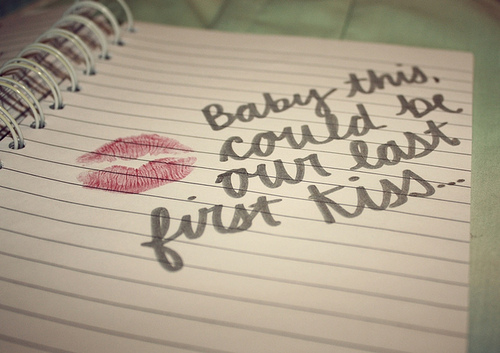 Baby this.
could be
our last
first kiss...